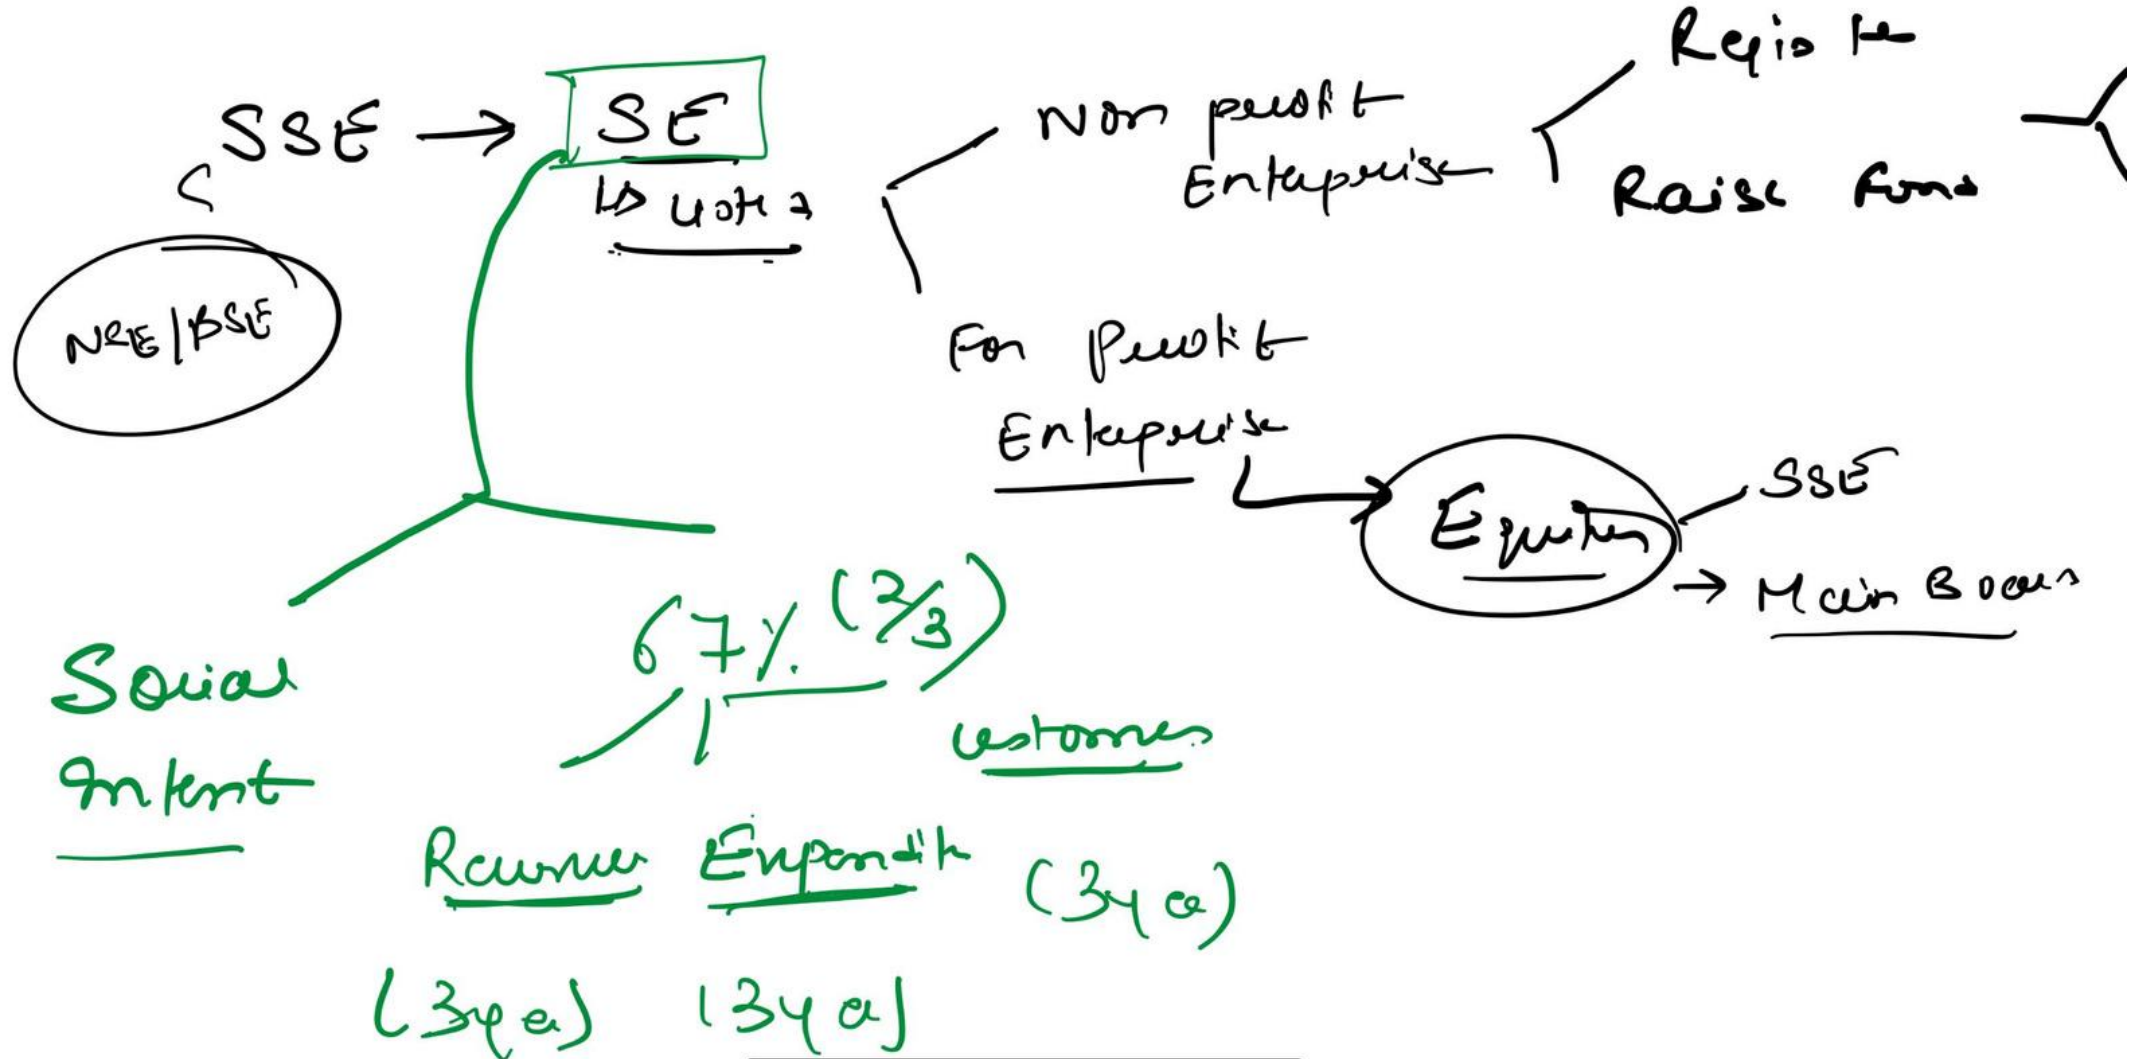 SSE → SE
NSE/BSE
Non profit
Enterprise
Register
Raise Fund
For Profit
Enterprise
Equity
SSE
→ Main Board
Social
Intent
67% (2/3)
Customers
Revenue Expenditure (3y a)
(3y a) (3y a)